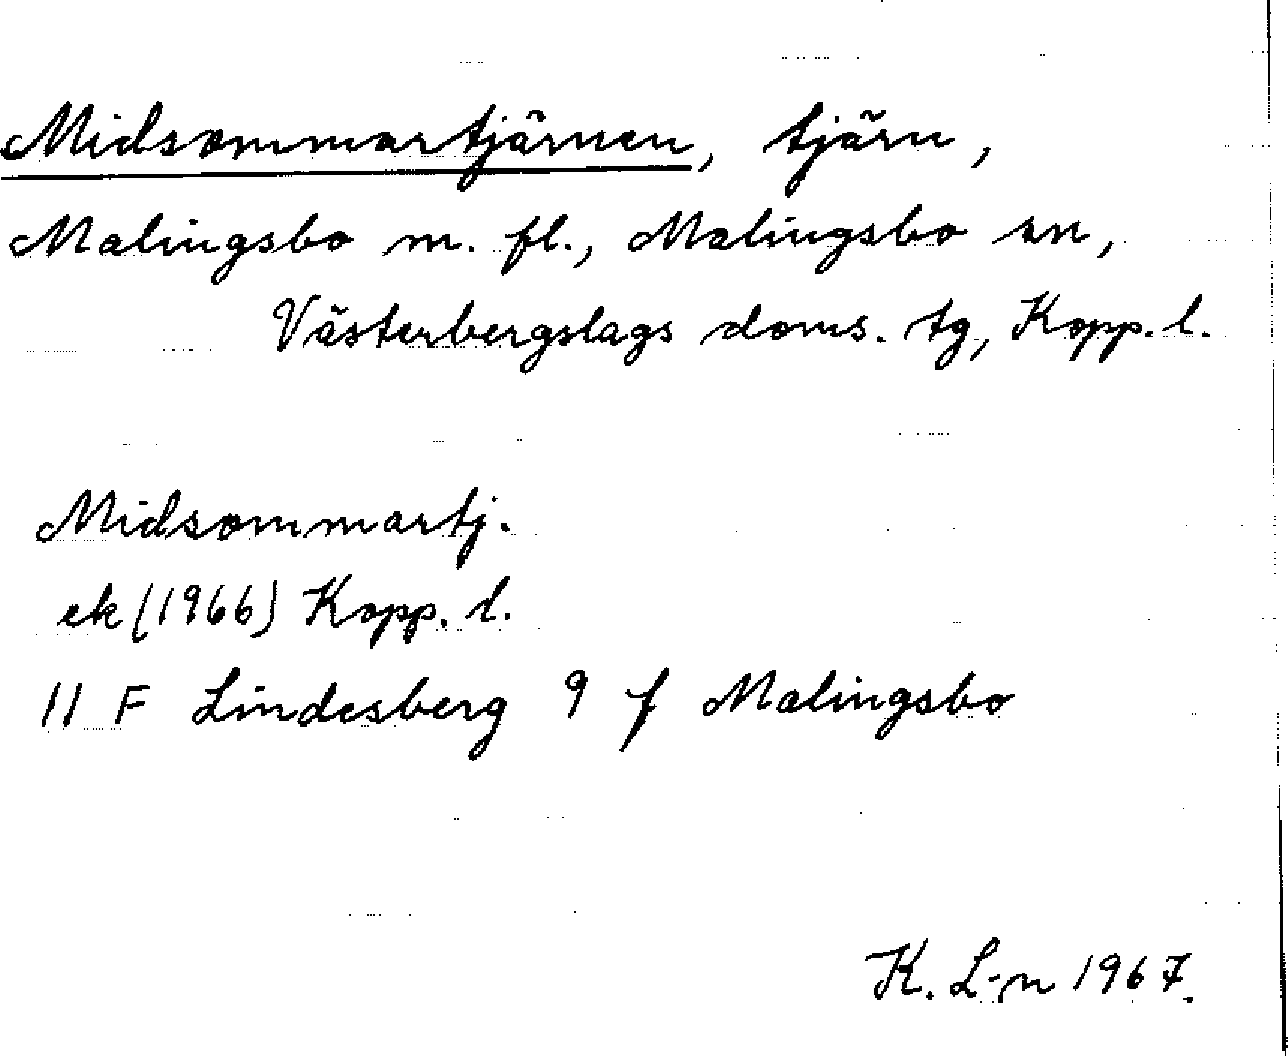 Midsommartjärnen, tjärn,
Malingsbo m. fl., Malingsbo sn,
Västerbergslags doms. tg, Kopp. l.
Midsommartj.
ek (1966) Kopp. l.
11 F Lindesberg 9 f Malingsbo
K. L-n 1967.